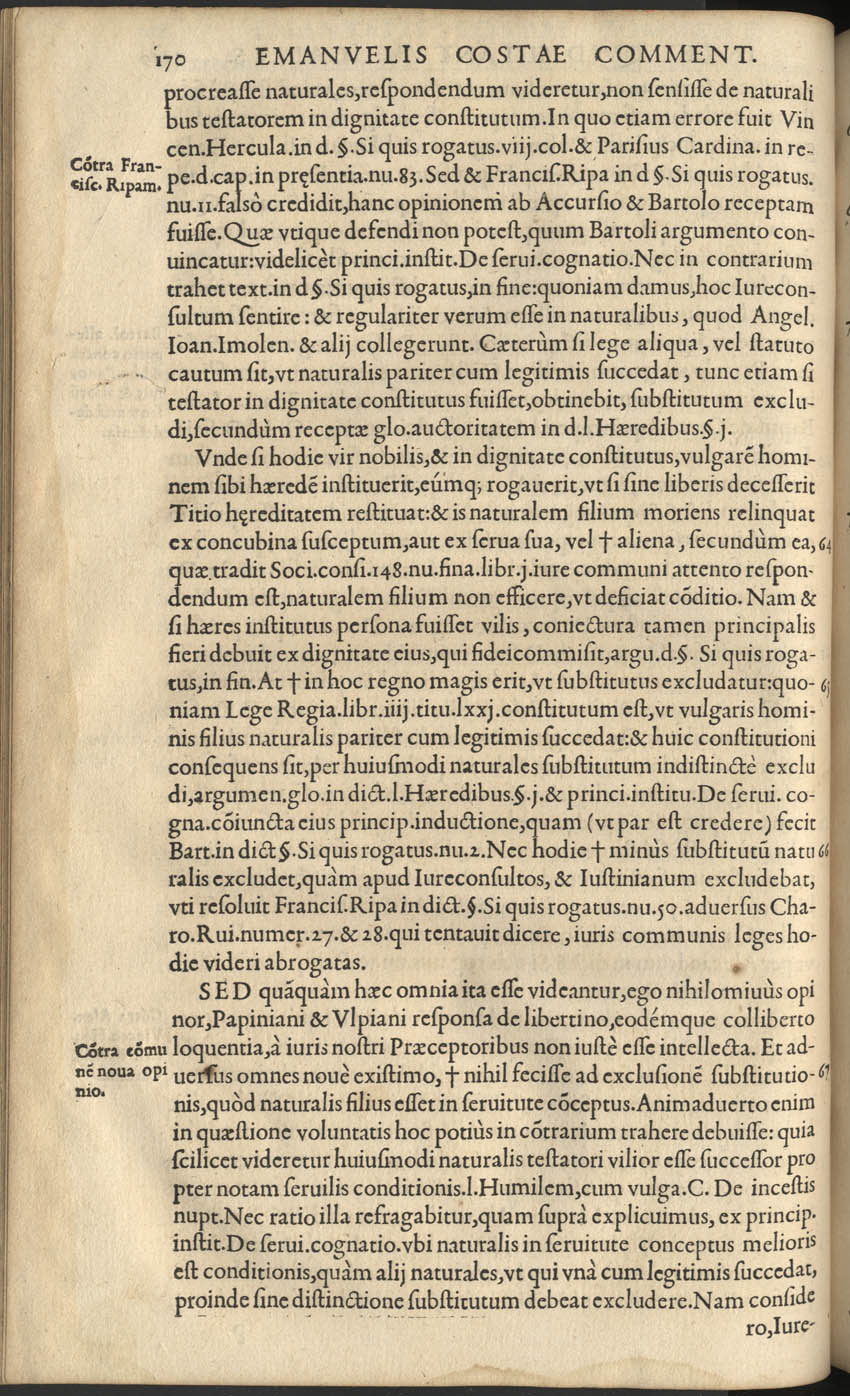 170 EMANVELIS COSTAE COMMENT.
procreaſſe naturales,reſpondendum videretur,non ſenſiſſe de naturali
bus teſtatorem in dignitate conſtitutum.In quo etiam errore fuit Vin
cen.Hercula.in d.§.Si quis rogatus.viij.col.& Pariſius Cardina. in re-
Cōtra Fran-
ciſc. Ripam.
pe.d.cap.in pręſentia.nu.83.Sed & Franciſ.Ripa in d §.Si quis rogatus.
nu.11.falsò credidit,hanc opinionem ab Accurſio & Bartolo receptam
fuiſſe.Quæ vtique defendi non poteſt,quum Bartoli argumento con-
uincatur:videlicèt princi.inſtit.De ſerui.cognatio.Nec in contrarium
trahet text.in d §.Si quis rogatus,in fine:quoniam damus,hoc Iurecon-
ſultum ſentire : & regulariter verum eſſe in naturalibus, quod Angel.
Ioan.Imolen. & alij collegerunt. Cæterùm ſi lege aliqua, vel ſtatuto
cautum ſit,vt naturalis pariter cum legitimis ſuccedat, tunc etiam ſi
teſtator in dignitate conſtitutus fuiſſet,obtinebit, ſubſtitutum exclu-
di,ſecundùm receptæ glo.auctoritatem in d.l.Hæredibus.§.j.
Vnde ſi hodie vir nobilis,& in dignitate conſtitutus,vulgarē homi-
nem ſibi hæredē inſtituerit,eúmq; rogauerit,vt ſi ſine liberis deceſſerit
Titio hęreditatem reſtituat:& is naturalem filium moriens relinquat
ex concubina ſuſceptum,aut ex ſerua ſua, vel † aliena, ſecundùm ea, 64
quæ tradit Soci.conſi.148.nu.fina.libr.j.iure communi attento reſpon-
dendum eſt,naturalem filium non efficere,vt deficiat cōditio. Nam &
ſi hæres inſtitutus perſona fuiſſet vilis, coniectura tamen principalis
fieri debuit ex dignitate eius,qui fideicommiſit,argu.d.§. Si quis roga-
tus,in fin.At † in hoc regno magis erit,vt ſubſtitutus excludatur:quo- 65
niam Lege Regia.libr.iiij.titu.lxxj.conſtitutum eſt,vt vulgaris homi-
nis filius naturalis pariter cum legitimis ſuccedat:& huic conſtitutioni
conſequens ſit,per huiuſmodi naturales ſubſtitutum indiſtinctè exclu
di,argumen.glo.in dict.l.Hæredibus.§.j.& princi.inſtitu.De ſerui. co-
gna.cōiuncta eius princip.inductione,quam (vt par eſt credere) fecit
Bart.in dict §.Si quis rogatus.nu.2.Nec hodie † minùs ſubſtitutū natu 66
ralis excludet,quàm apud Iureconſultos, & Iuſtinianum excludebat,
vti reſoluit Franciſ.Ripa in dict.§.Si quis rogatus.nu.50.aduerſus Cha-
ro.Rui.numer.27.& 28.qui tentauit dicere, iuris communis leges ho-
die videri abrogatas.
SED quāquàm hæc omnia ita eſſe videantur,ego nihilomiuùs opi
nor,Papiniani & Vlpiani reſponſa de libertino,eodémque colliberto
Cōtra cōmu
nē noua opi
nio.
loquentia,à iuris noſtri Præceptoribus non iuſtè eſſe intellecta. Et ad-
uerſus omnes nouè exiſtimo, † nihil feciſſe ad excluſionē ſubſtitutio- 67
nis,quòd naturalis filius eſſet in ſeruitute cōceptus.Animaduerto enim
in quæſtione voluntatis hoc potiùs in cōtrarium trahere debuiſſe: quia
ſcilicet videretur huiuſmodi naturalis teſtatori vilior eſſe ſucceſſor pro
pter notam ſeruilis conditionis.l.Humilem,cum vulga.C. De inceſtis
nupt.Nec ratio illa refragabitur,quam ſuprà explicuimus, ex princip.
inſtit.De ſerui.cognatio.vbi naturalis in ſeruitute conceptus melioris
eſt conditionis,quàm alij naturales,vt qui vnà cum legitimis ſuccedat,
proinde ſine diſtinctione ſubſtitutum debeat excludere.Nam conſide
ro,Iure-